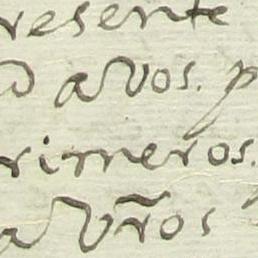 resente
a vos. p
rimeros.
a vr̃os